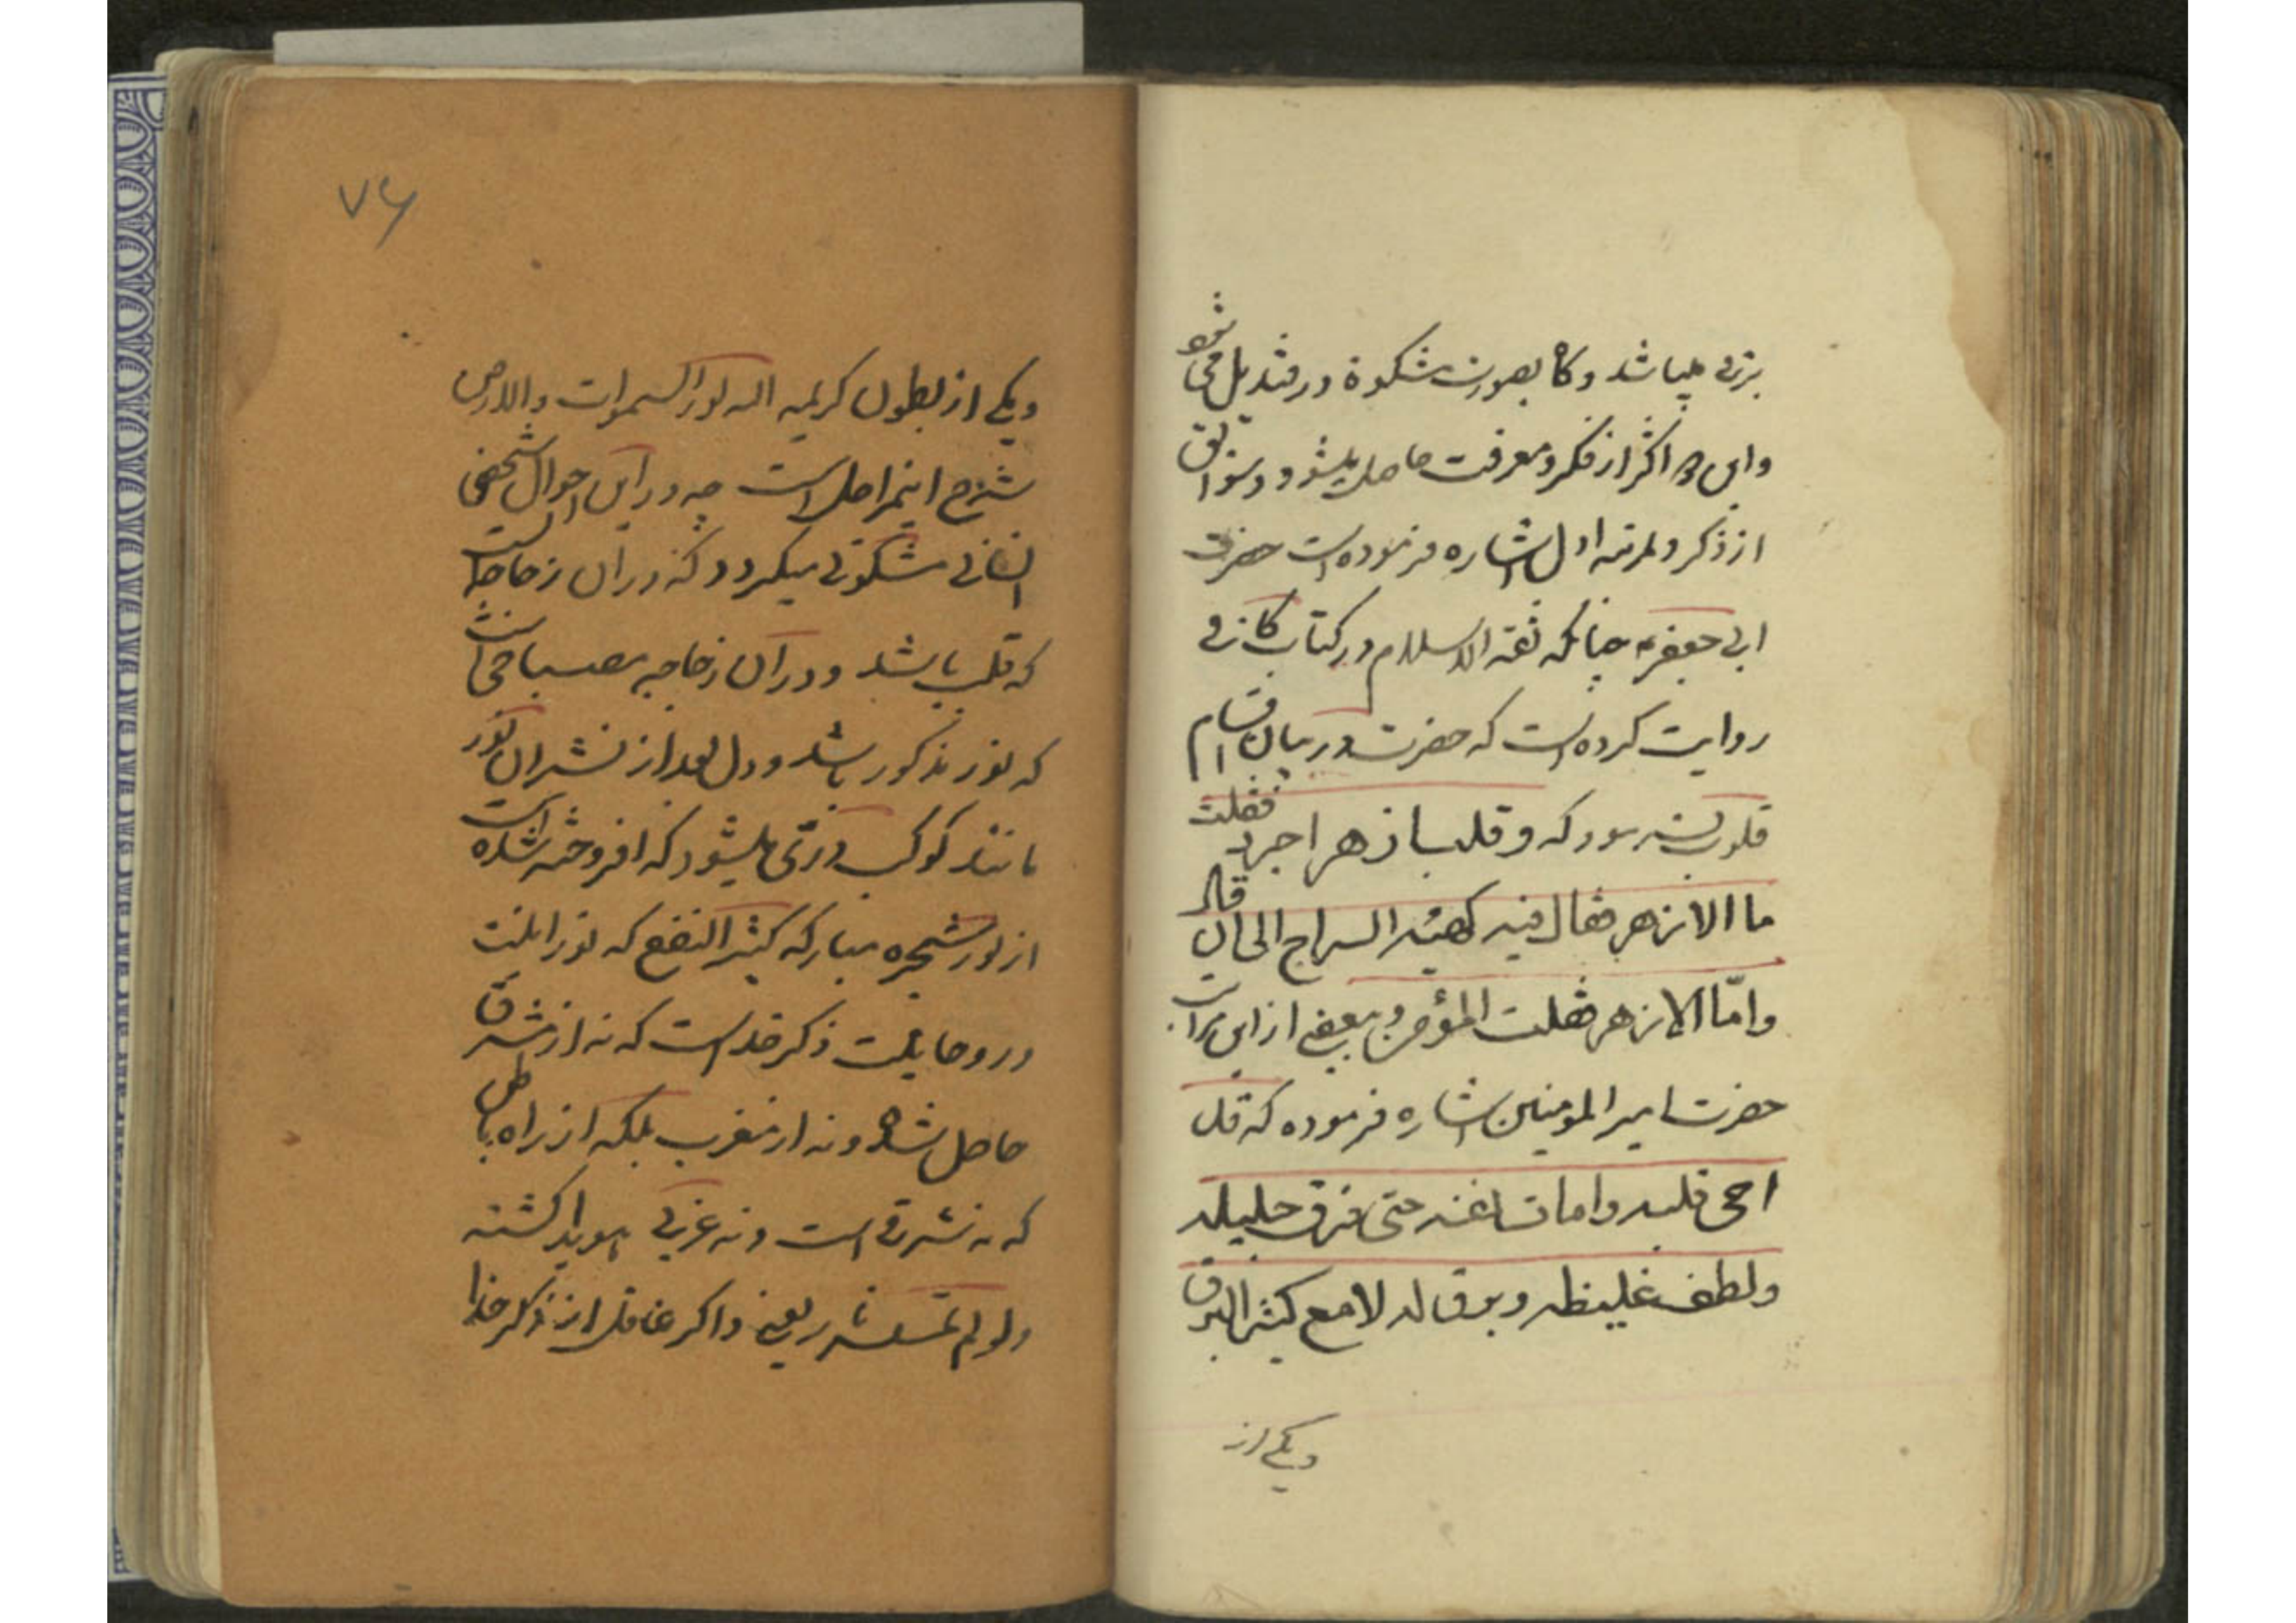 بزرگی میباشد وگاه بصورت مشکوة و قندیل می شود
واین اکثر از فکر و معرفت حاصل میشود و
از ذکر و بمرتبه اول اشاره فرموده است حضرت
ابی جعفر ع چنانکه ثقة الاسلام در کتاب کافی
روایت کرده است که حضرت در بیان اقسام
قلوب که وقلب ازهر اجرد فقلت
ما الازهر فقال فیه کهیئه السراج الی ان قال
وامّا الازهر فقلب المؤمن و بعضی از این مراتب
حضرت امیر المومنین اشاره فرموده که قد
احی قلبه وامات نفسه حتی دق جلیله
ولطف غلیظه و برق له لامع کثیر البرق
ویکی از
۷۶
ویکی از بطون کریمه الله نور السموات والارض
شرح اینمراحل است چه در این احوال شخص
انسانی مشکوتی میگردد که در ان زجاجه است
که قلب باشد و در آن زجاجه مصباحی است
که نور مذکور باشد و دل بعد از نشر ان نور
مانند کوکب درّی میشود که افروخته شده است
از نور شجره مبارکه کثیر النفع که نورانیت
و روحانیت ذکر خداست که نه از مشرق
حاصل شده و نه از مغرب بلکه از راه باطن
که نه شرقی است و نه غربی هویدا کشته
ولو لم تمسسه نار یعنی و اکر غافل از ذکر خدا